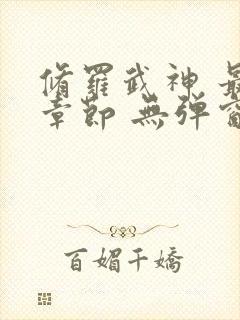 脩羅武神 最
章節 無彈窗
百媚千嬌